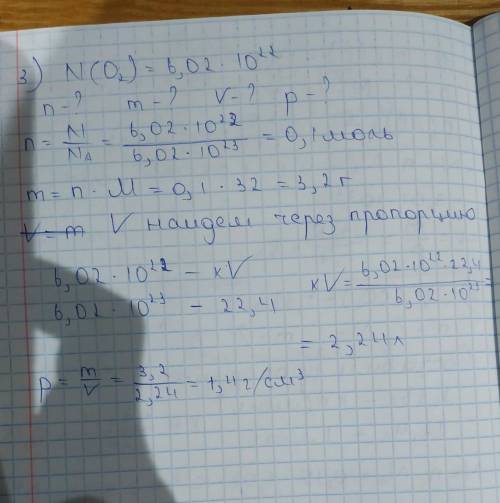 3) N(O₂) = 6,02 · 10²²
n-? m-? V-? p-?
n = N/Nₐ = 6,02 · 10²²/6,02 · 10²³ = 0,1 моль
m = n · M = 0,1 · 32 = 3,2 г
V = m V найдем через пропорцию
6,02 · 10²² – xV
6,02 · 10²³ – 22,4
xV = 6,02 · 10²² · 22,4/6,02 · 10²³ =
= 2,24л
p = m/V = 3,2/2,24 = 1,4 г/см³